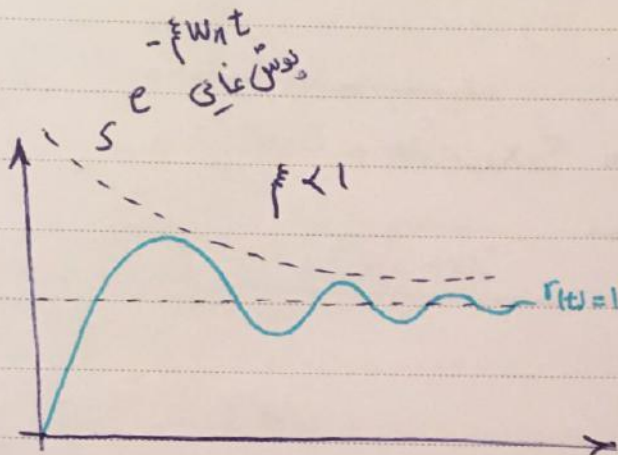 -ξωnt
پوش نمایی e
ξ < 1
r(t)=1